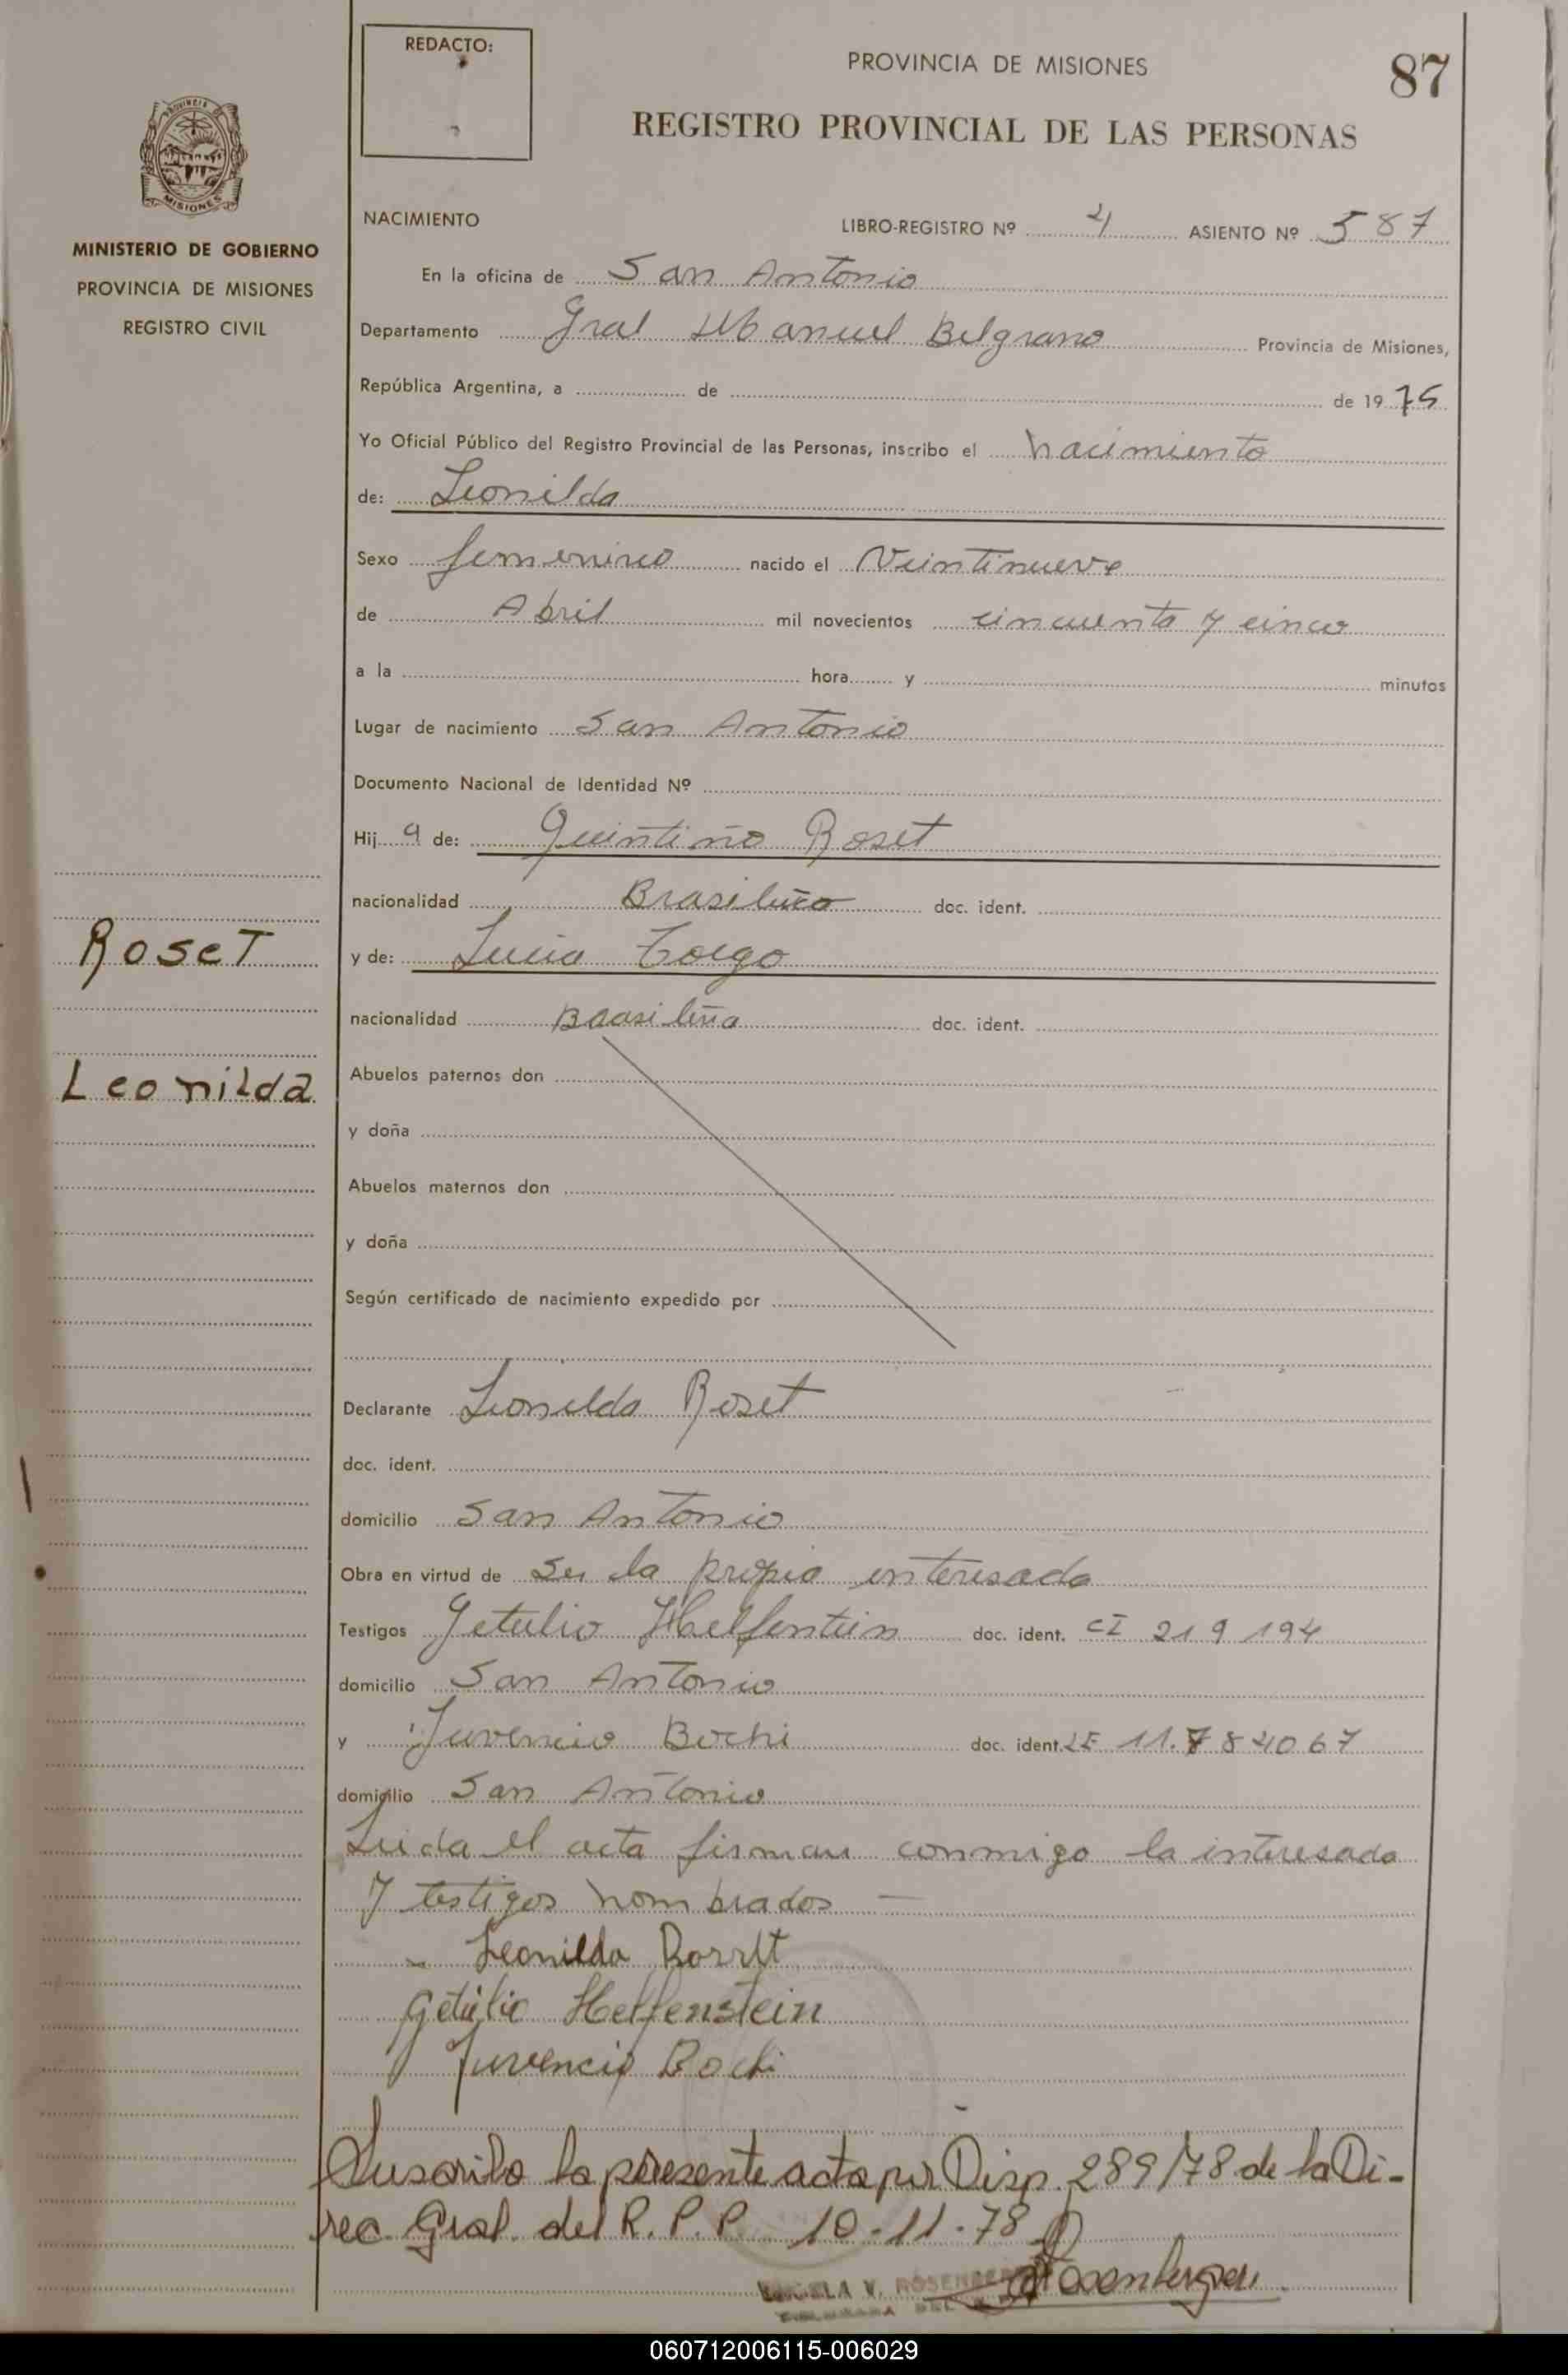 REDACTO:
PROVINCIA DE MISIONES
87
REGISTRO PROVINCIAL DE LAS PERSONAS
PROVINCIA DE
MISIONES
MINISTERIO DE GOBIERNO
PROVINCIA DE MISIONES
REGISTRO CIVIL
NACIMIENTO LIBRO-REGISTRO Nº 4 ASIENTO Nº 587
En la oficina de San Antonio
Departamento Gral Manuel Belgrano Provincia de Misiones,
República Argentina, a de de 1975
Yo Oficial Público del Registro Provincial de las Personas, inscribo el nacimiento
de: Leonilda
Sexo femenino nacido el Veintinueve
de Abril mil novecientos cincuenta y cinco
a la hora y minutos
Lugar de nacimiento San Antonio
Documento Nacional de Identidad Nº
Hij a de: Quintino Roset
nacionalidad Brasileño doc. ident.
Roset
y de: Lucia
nacionalidad Brasileña doc. ident.
Leonilda
Abuelos paternos don
y doña
Abuelos maternos don
y doña
Según certificado de nacimiento expedido por
Declarante Leonilda Roset
doc. ident.
domicilio San Antonio
Obra en virtud de Ser la propia interesada
Testigos Getulio Helfentein doc. ident. CI 219194
domicilio San Antonio
y Juvencio Bochi doc. ident. LE 11.784067
domicilio San Antonio
Leida el acta firman conmigo la interesada
y testigos nombrados —
Leonilda
Getúlio Helfenstein
Juvencio Bochi
Suscribo la presente acta por Disp. 289/78 de la Di-
rec. Gral. del R.P.P. 10-11-78
V. ROSENBERGER
Rosenberger
060712006115-006029